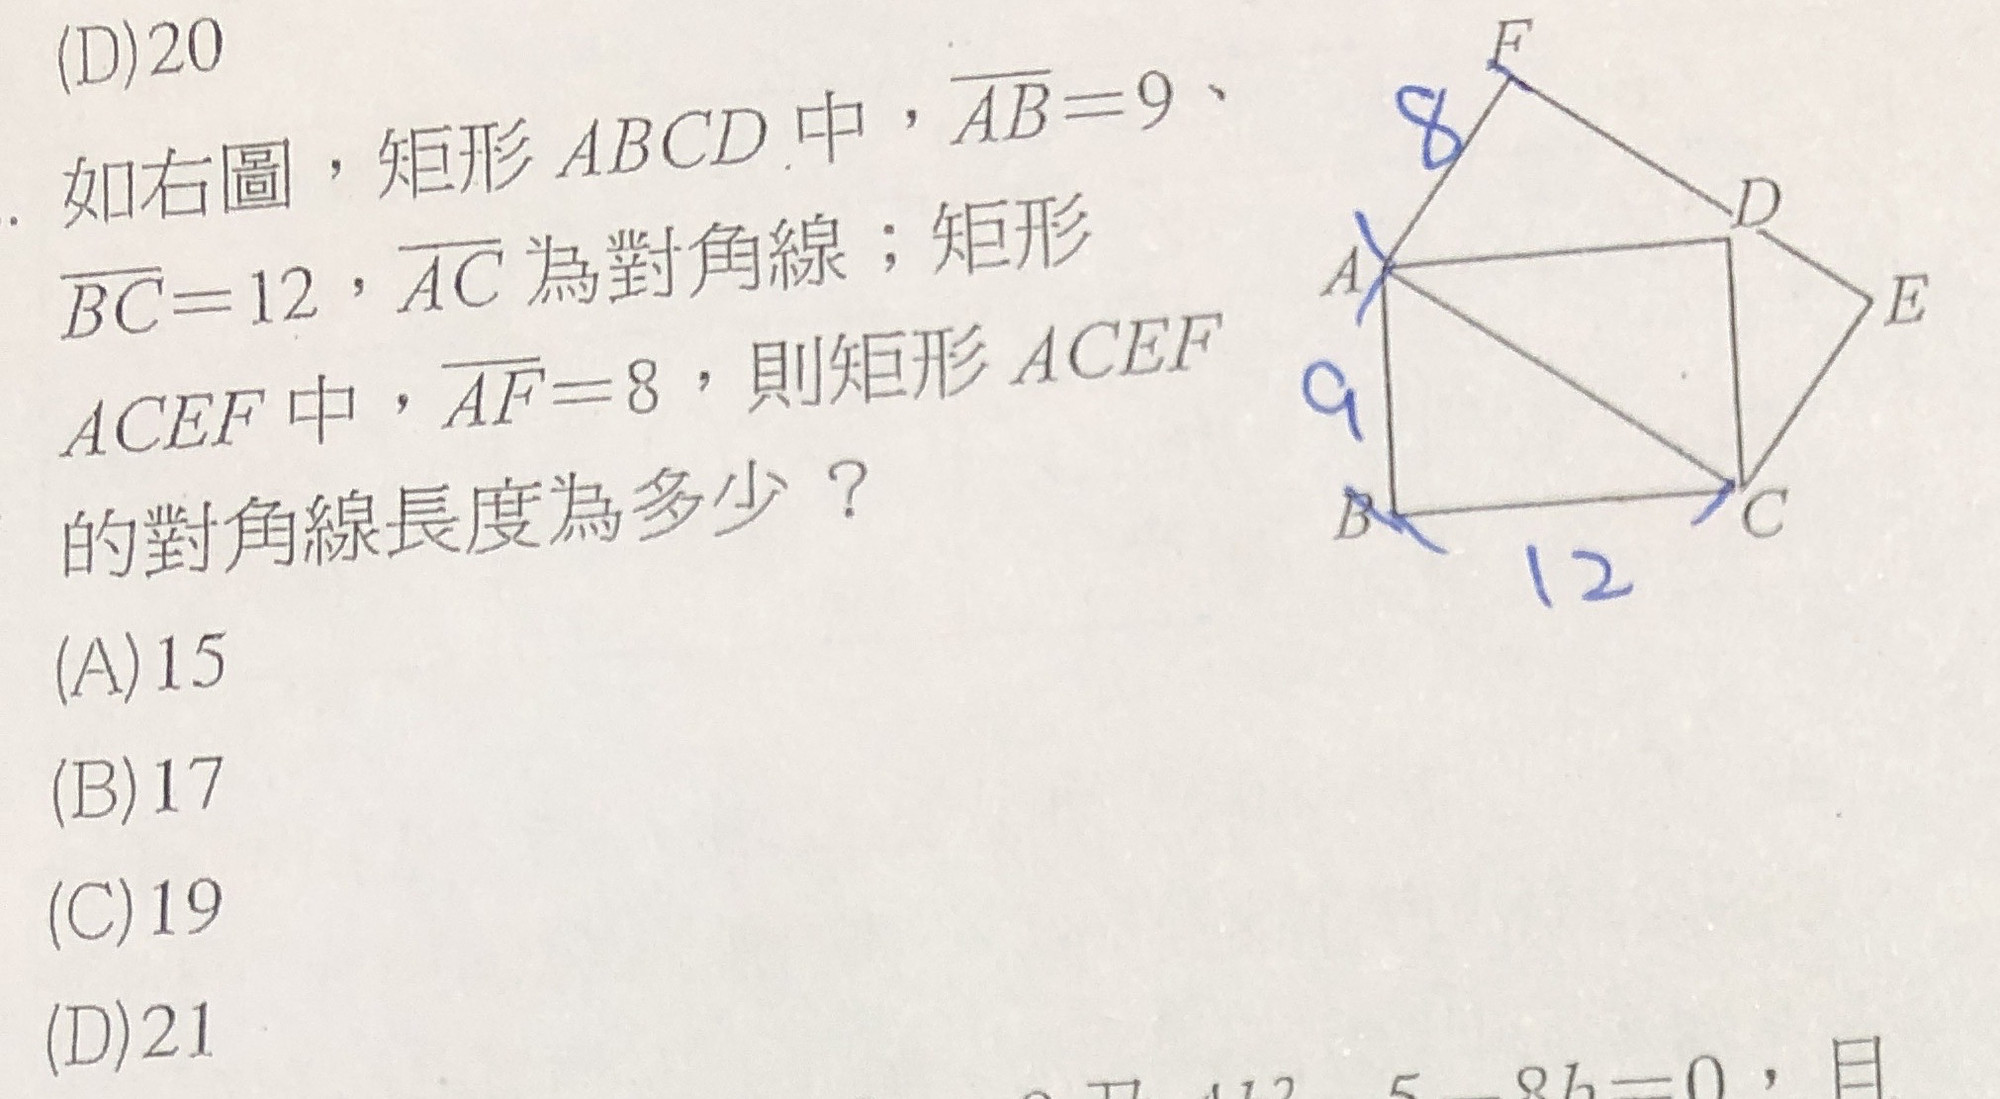 (D)20
如右圖，矩形 ABCD 中，AB=9、
BC=12，AC 為對角線；矩形
ACEF 中，AF=8，則矩形 ACEF
的對角線長度為多少？
(A)15
(B)17
(C)19
(D)21
F
8
D
A
E
9
B
C
12
5-8b=0，且